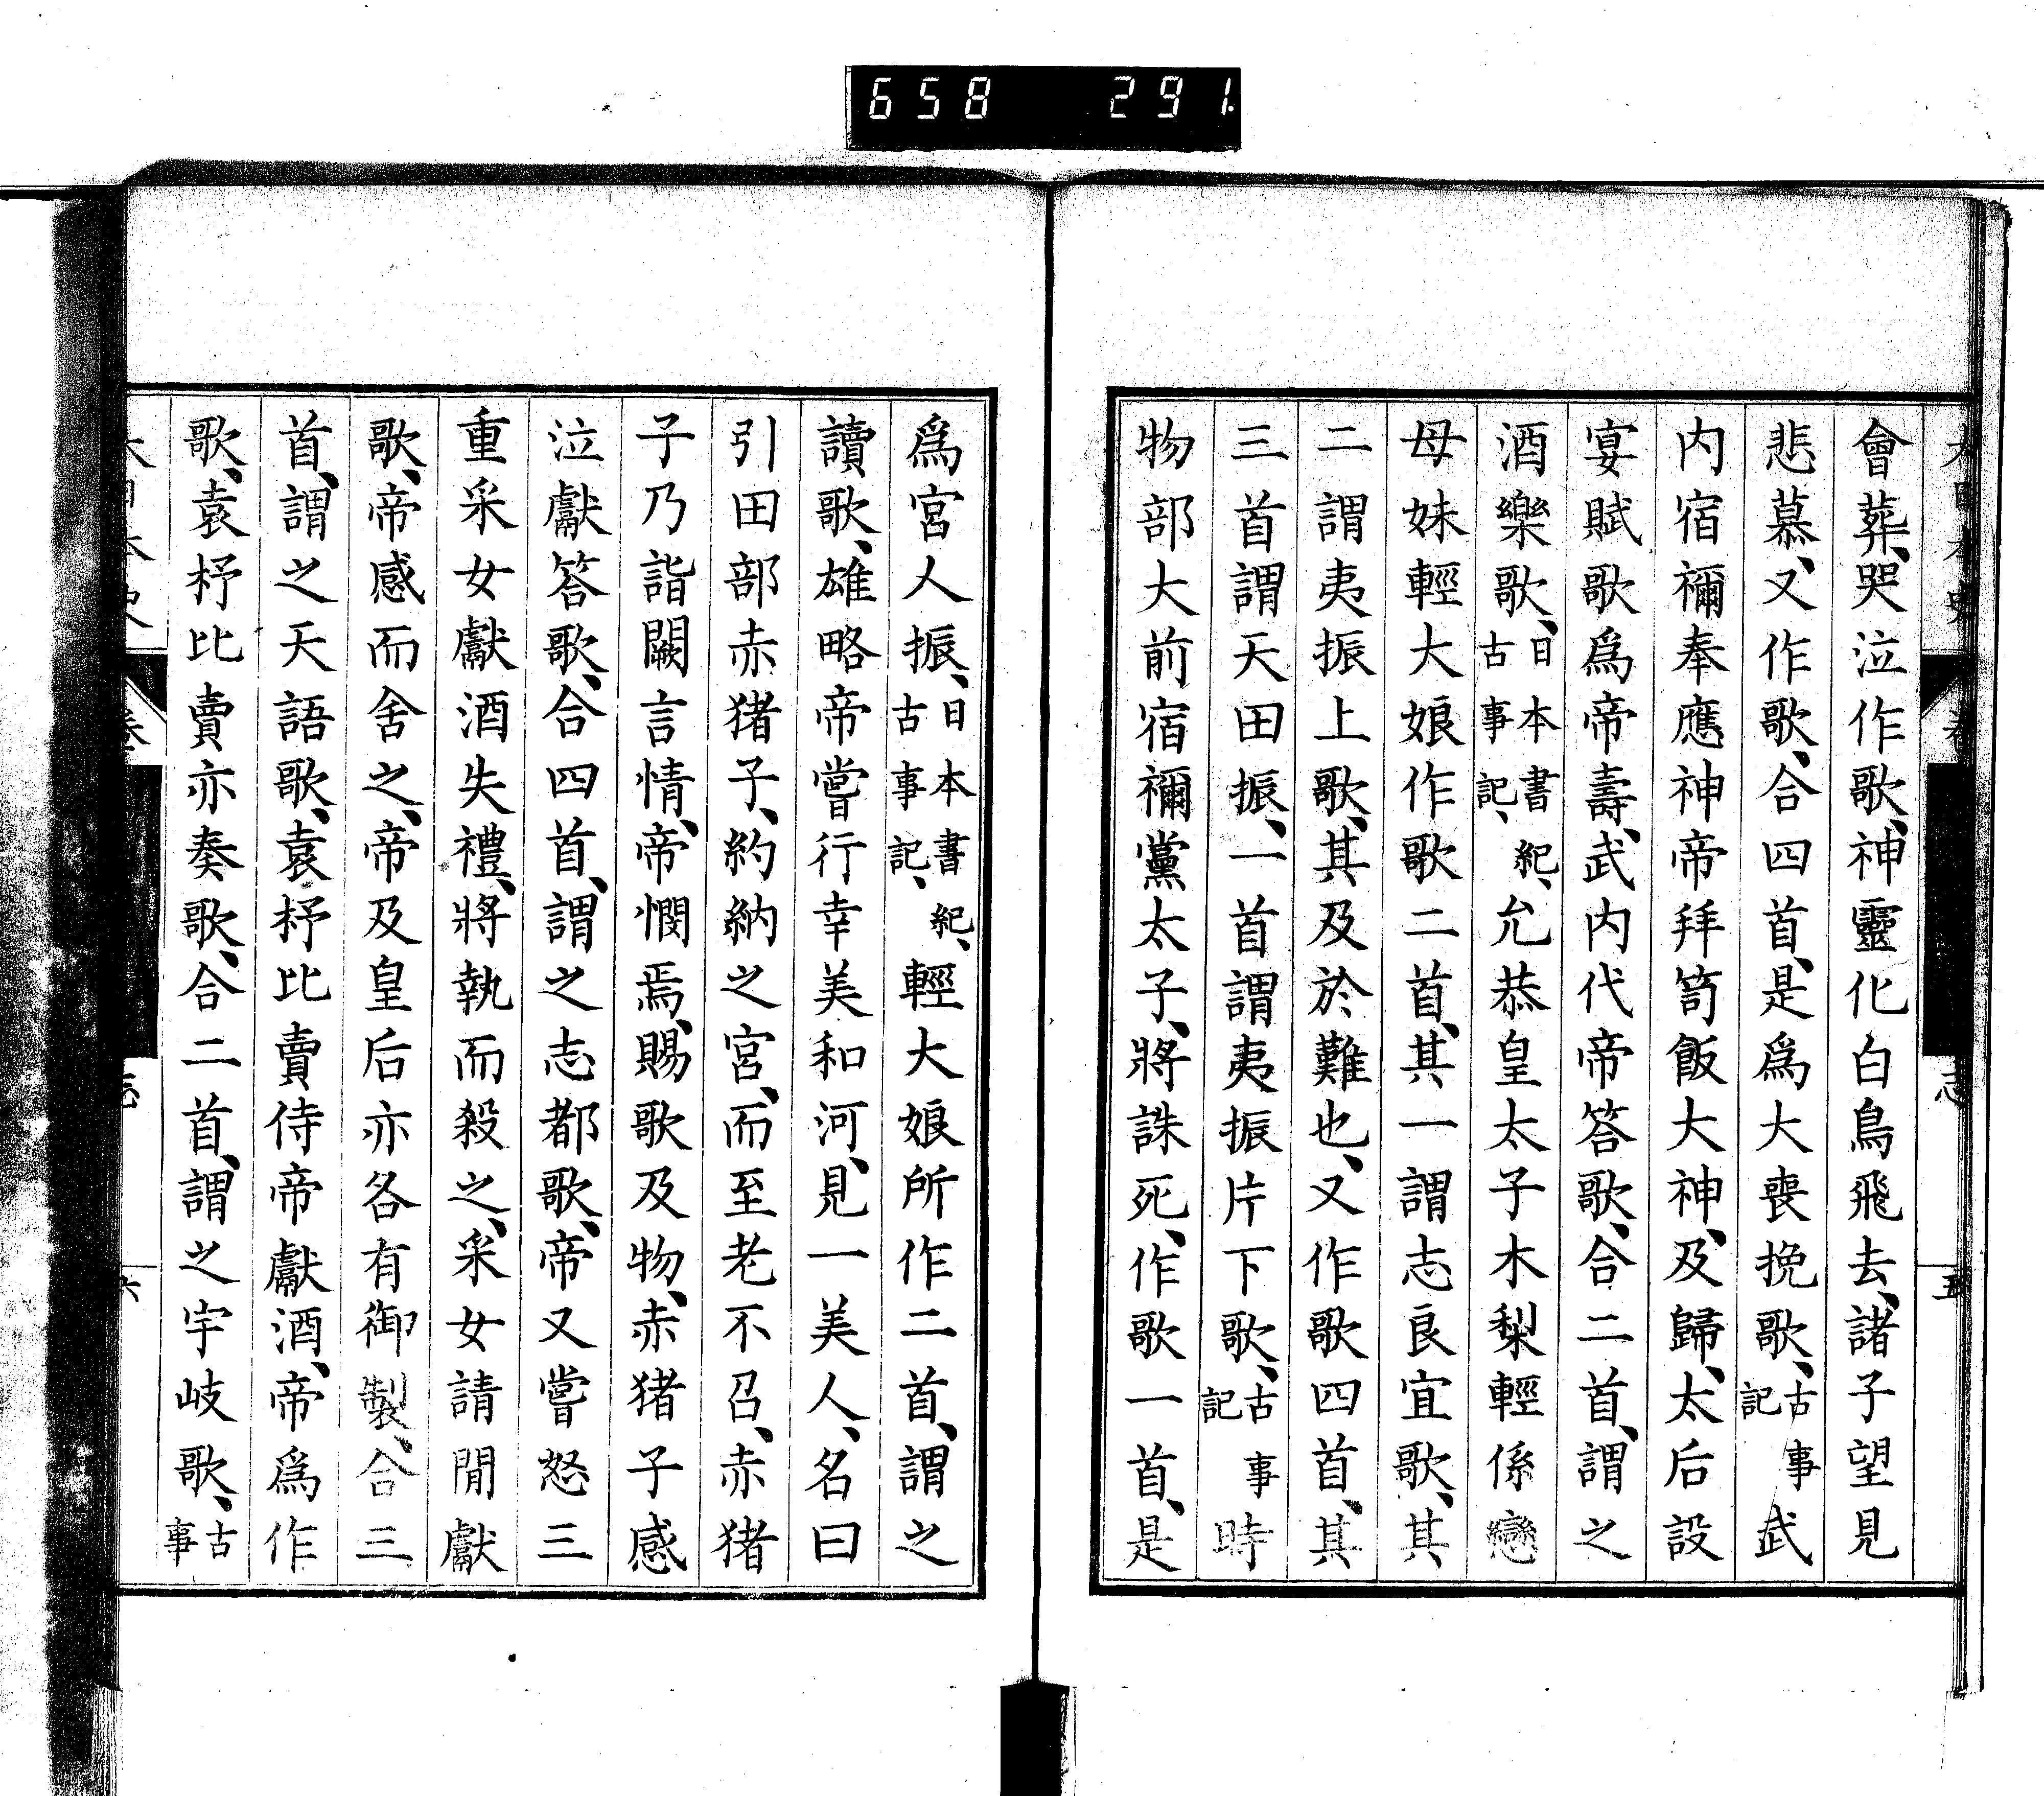 658 291
會葬、哭泣作歌、神靈化白鳥飛去、諸子望見
悲慕、又作歌、合四首、是爲大喪挽歌、古事記武
内宿禰奉應神帝拜笥飯大神、及歸、太后設
宴賦歌爲帝壽、武内代帝答歌、合二首、謂之
酒樂歌、日本書紀、古事記、允恭皇太子木梨輕係戀
母妹輕大娘作歌二首、其一謂志良宜歌、其
二謂夷振上歌、其及於難也、又作歌四首、其
三首謂天田振、一首謂夷振片下歌、古事記時
物部大前宿禰黨太子、將誅死、作歌一首、是
爲宮人振、日本書紀、古事記、輕大娘所作二首、謂之
讀歌、雄略帝嘗行幸美和河、見一美人、名曰
引田部赤猪子、約納之宮、而至老不召、赤猪
子乃詣闕言情、帝憫焉、賜歌及物、赤猪子感
泣獻答歌、合四首、謂之志都歌、帝又嘗怒三
重采女獻酒失禮、將執而殺之、采女請閒獻
歌、帝感而舍之、帝及皇后亦各有御製、合三
首、謂之天語歌、袁杼比賣侍帝獻酒、帝爲作
歌、袁杼比賣亦奏歌、合二首、謂之宇岐歌、古事